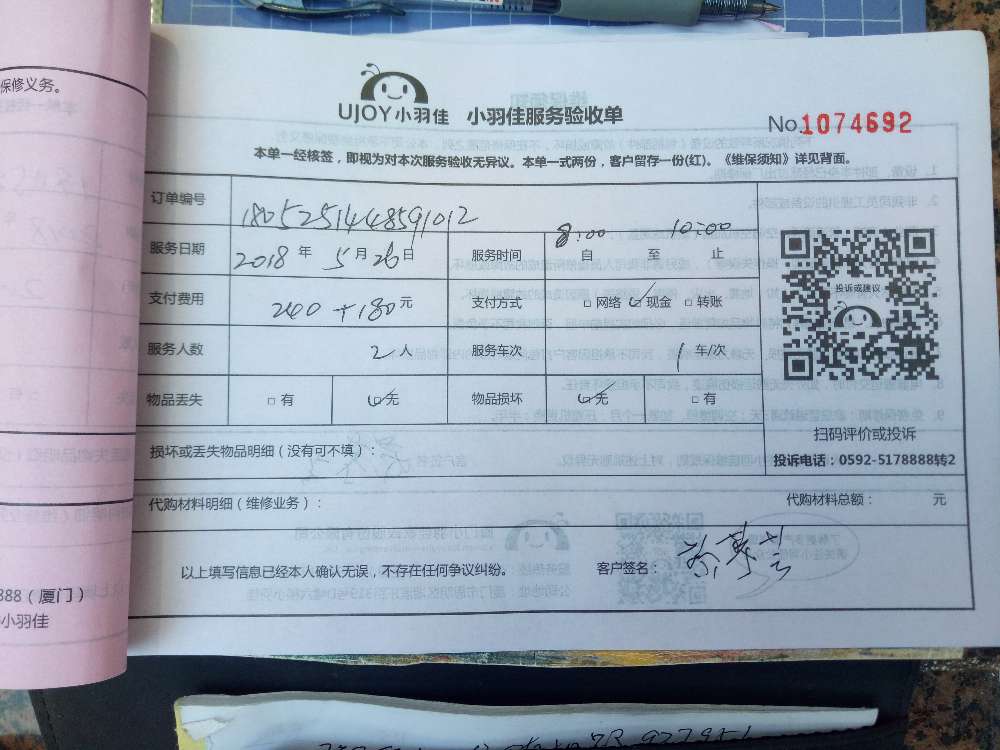 保修义务。
UJOY小羽佳 小羽佳服务验收单
No.1074692
本单一经核签，即视为对本次服务验收无异议。本单一式两份，客户留存一份(红)。《维保须知》详见背面。
订单编号 1805251448591012
服务日期 2018 年 5 月 26 日 服务时间 8:00 自 至 10:00 止
支付费用 240 + 180 元 支付方式 □网络 ☑现金 □转账
服务人数 2 人 服务车次 1 车/次
物品丢失 □有 ☑无 物品损坏 ☑无 □有
投诉或建议
扫码评价或投诉
投诉电话：0592-5178888转2
损坏或丢失物品明细（没有可不填）：
代购材料明细（维修业务）： 代购材料总额： 元
以上填写信息已经本人确认无误，不存在任何争议纠纷。 客户签名：
888（厦门）
小羽佳